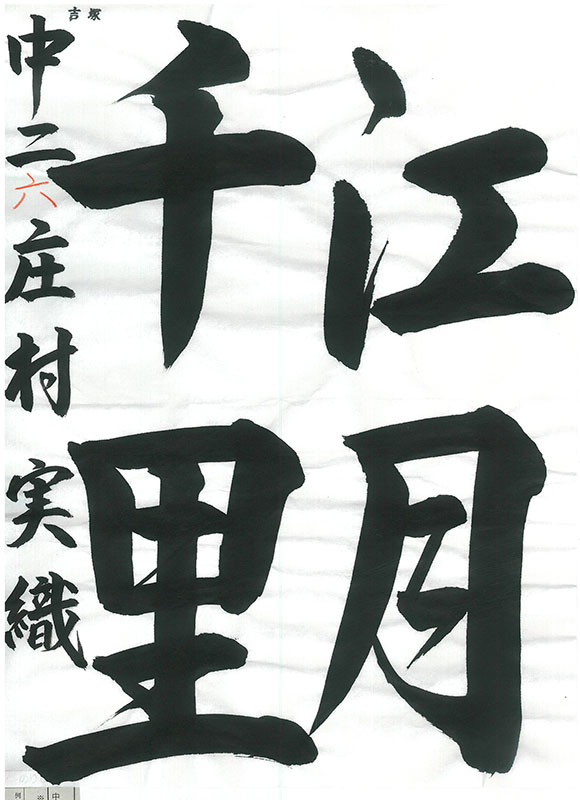 江月
千里
中二六庄村実織
吉塚